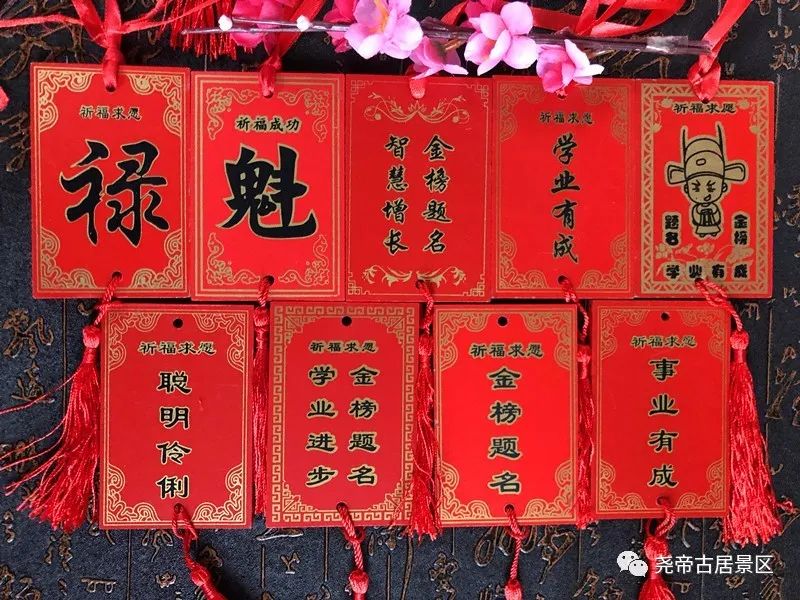 祈福求愿
禄
祈福成功
魁
金榜题名
智慧增长
祈福求愿
学业有成
祈福求愿
金榜
题名
学业有成
祈福求愿
聪明伶俐
祈福求愿
金榜题名
学业进步
祈福求愿
金榜题名
祈福求愿
事业有成
尧帝古居景区